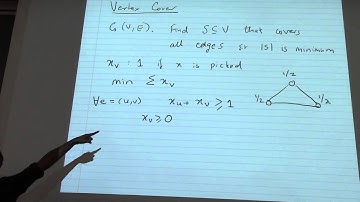 Vertex Cover
G(V,E). Find S⊆V that covers
all edges so |S| is minimum
x_v = 1 if x is picked
min Σ x_v
∀e=(u,v) x_u + x_v ⩾ 1
x_v ⩾ 0
1/2
1/2 1/2